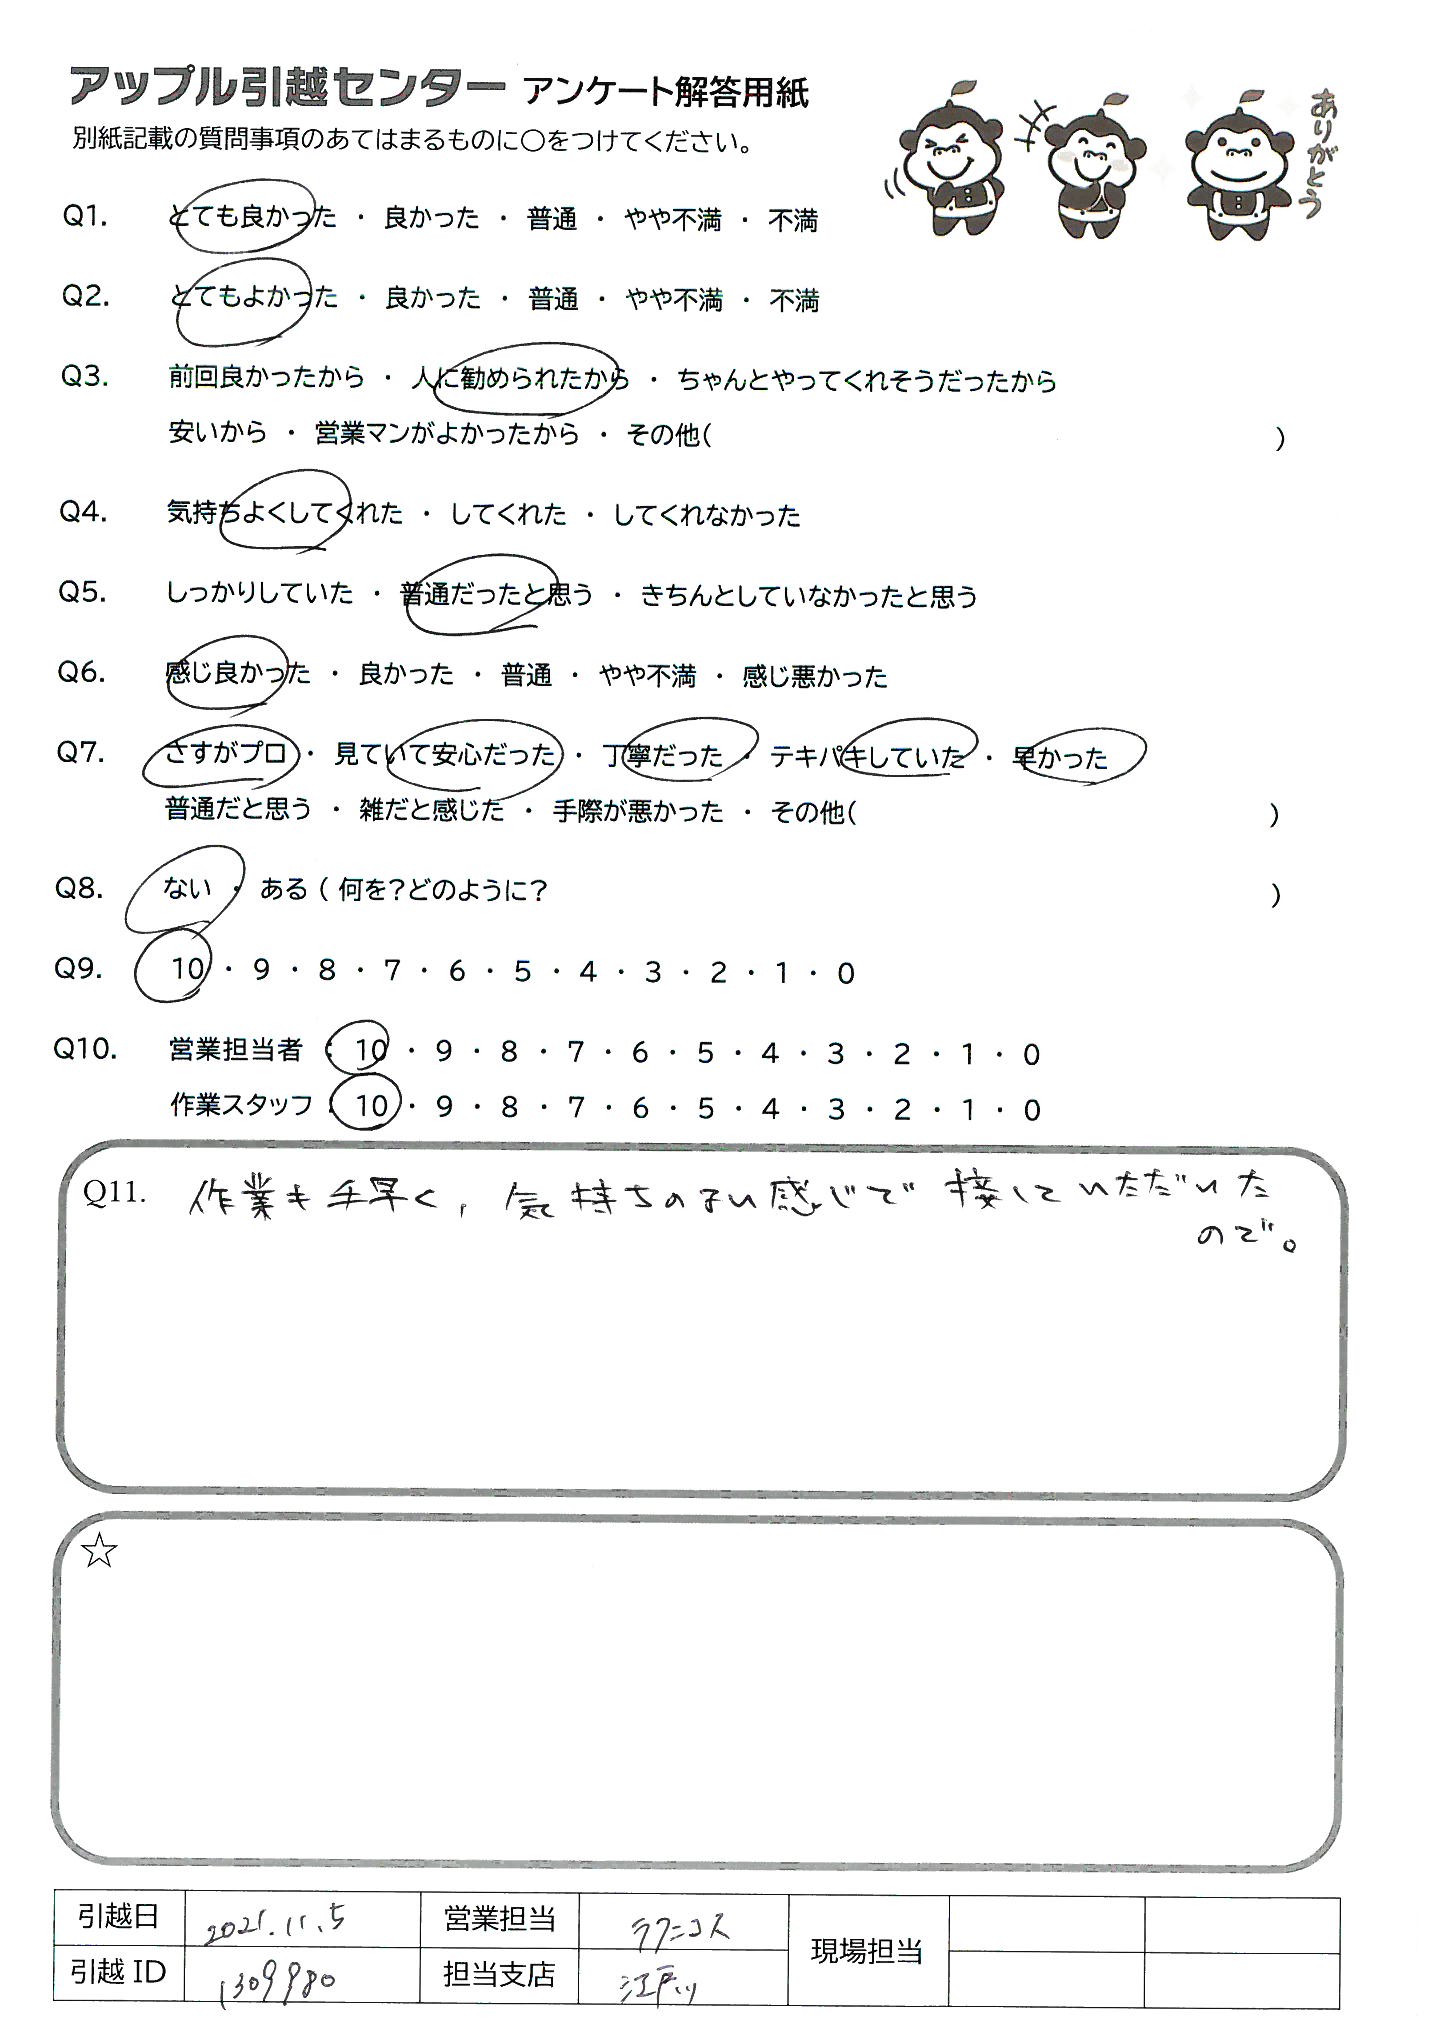 アップル引越センター アンケート解答用紙
別紙記載の質問事項のあてはまるものに〇をつけてください。
ありがとう
Q1. とても良かった ・ 良かった ・ 普通 ・ やや不満 ・ 不満
Q2. とてもよかった ・ 良かった ・ 普通 ・ やや不満 ・ 不満
Q3. 前回良かったから ・ 人に勧められたから ・ ちゃんとやってくれそうだったから
安いから ・ 営業マンがよかったから ・ その他( )
Q4. 気持ちよくしてくれた ・ してくれた ・ してくれなかった
Q5. しっかりしていた ・ 普通だったと思う ・ きちんとしていなかったと思う
Q6. 感じ良かった ・ 良かった ・ 普通 ・ やや不満 ・ 感じ悪かった
Q7. さすがプロ ・ 見ていて安心だった ・ 丁寧だった ・ テキパキしていた ・ 早かった
普通だと思う ・ 雑だと感じた ・ 手際が悪かった ・ その他( )
Q8. ない ・ ある ( 何を?どのように? )
Q9. 10 ・ 9 ・ 8 ・ 7 ・ 6 ・ 5 ・ 4 ・ 3 ・ 2 ・ 1 ・ 0
Q10. 営業担当者 : 10 ・ 9 ・ 8 ・ 7 ・ 6 ・ 5 ・ 4 ・ 3 ・ 2 ・ 1 ・ 0
作業スタッフ : 10 ・ 9 ・ 8 ・ 7 ・ 6 ・ 5 ・ 4 ・ 3 ・ 2 ・ 1 ・ 0
Q11. 作業も手早く, 気持ちのよい感じで接していただいた
ので。
☆
引越日 2021.11.5 営業担当 現場担当
引越ID 1309980 担当支店 江戸川